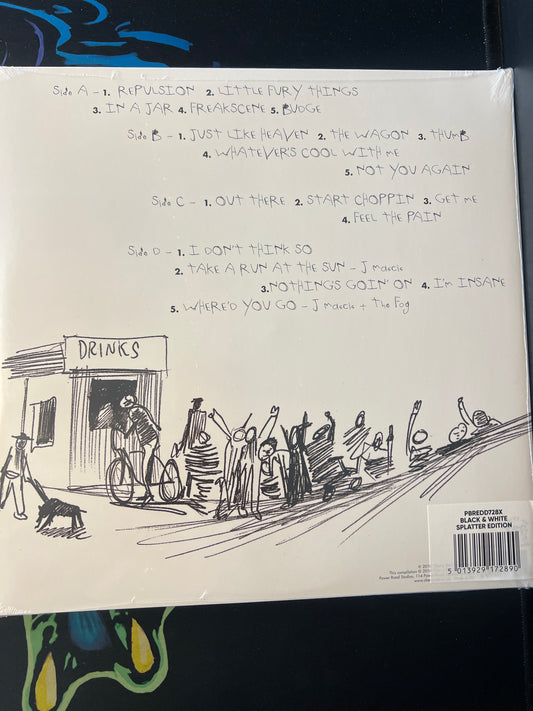 Side A - 1. REPULSION 2. LITTLE FURY THINGS
3. IN A JAR 4. FREAKSCENE 5. BUDGE
Side B - 1. JUST LIKE HEAVEN 2. THE WAGON 3. THUMB
4. WHATEVER'S COOL WITH ME
5. NOT YOU AGAIN
Side C - 1. OUT THERE 2. START CHOPPIN 3. GET ME
4. FEEL THE PAIN
Side D - 1. I DON'T THINK SO
2. TAKE A RUN AT THE SUN - J Mascis
3.NOTHINGS GOIN' ON 4. I'M INSANE
5. WHERE'D YOU GO - J Mascis + The Fog
DRINKS
PBREDD728X
BLACK & WHITE
SPLATTER EDITION
This compilation
Power Road Studios, 114
5 013929 172890